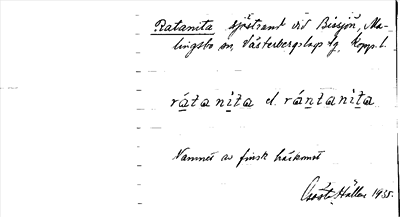 Ratanita sjöstrand vid Bisjön, Ma-
lingsbo sn, Västerbergslags dg, Kopp. l.
rátanita el. rántanita
Namnet av finsk härkomst
Hällen 1935.